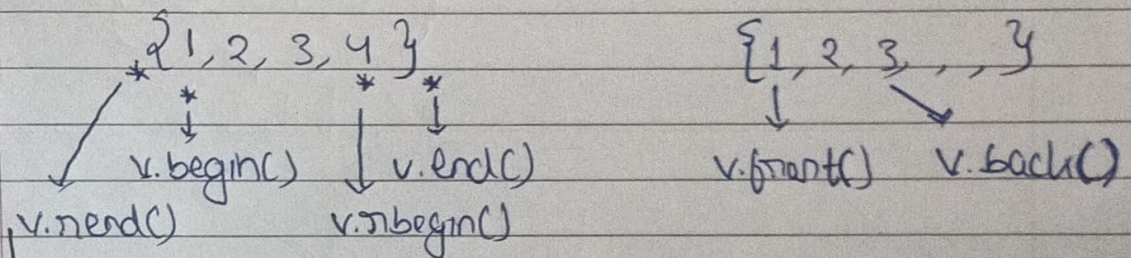 {1, 2, 3, 4} {1, 2, 3, , , }
* * * *
v.begin() v.end() v.front() v.back()
v.rend() v.rbegin()